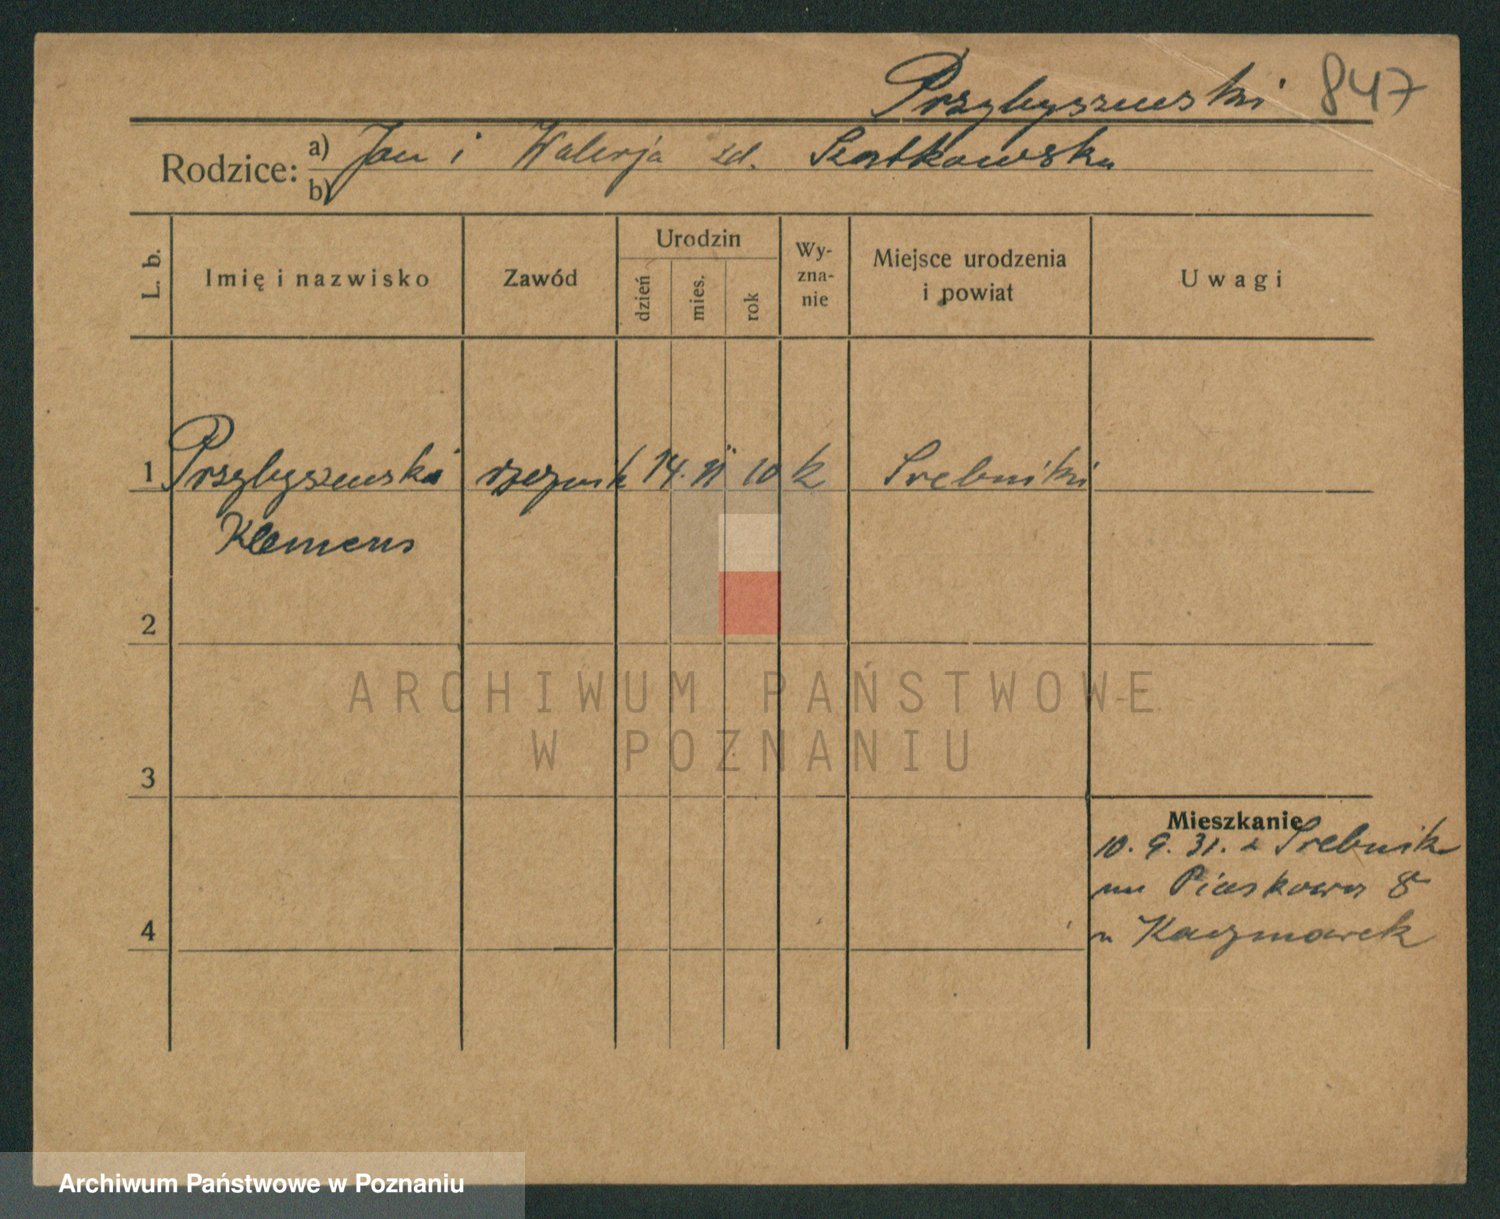 Przybyszewski 847
Rodzice: a) Jan i Walerja zd.
b)
L. b. Imię i nazwisko Zawód Urodzin Wy-zna-nie Miejsce urodzenia i powiat Uwagi
dzień mies. rok
1 Przybyszewski 14. 10 k Srebniki
Klemens
2
ARCHIWUM PAŃSTWOWE
W POZNANIU
3
Mieszkanie
10. 9. 31. z Srebnik
Piaskowa 8
4 Kaczmarek
Archiwum Państwowe w Poznaniu